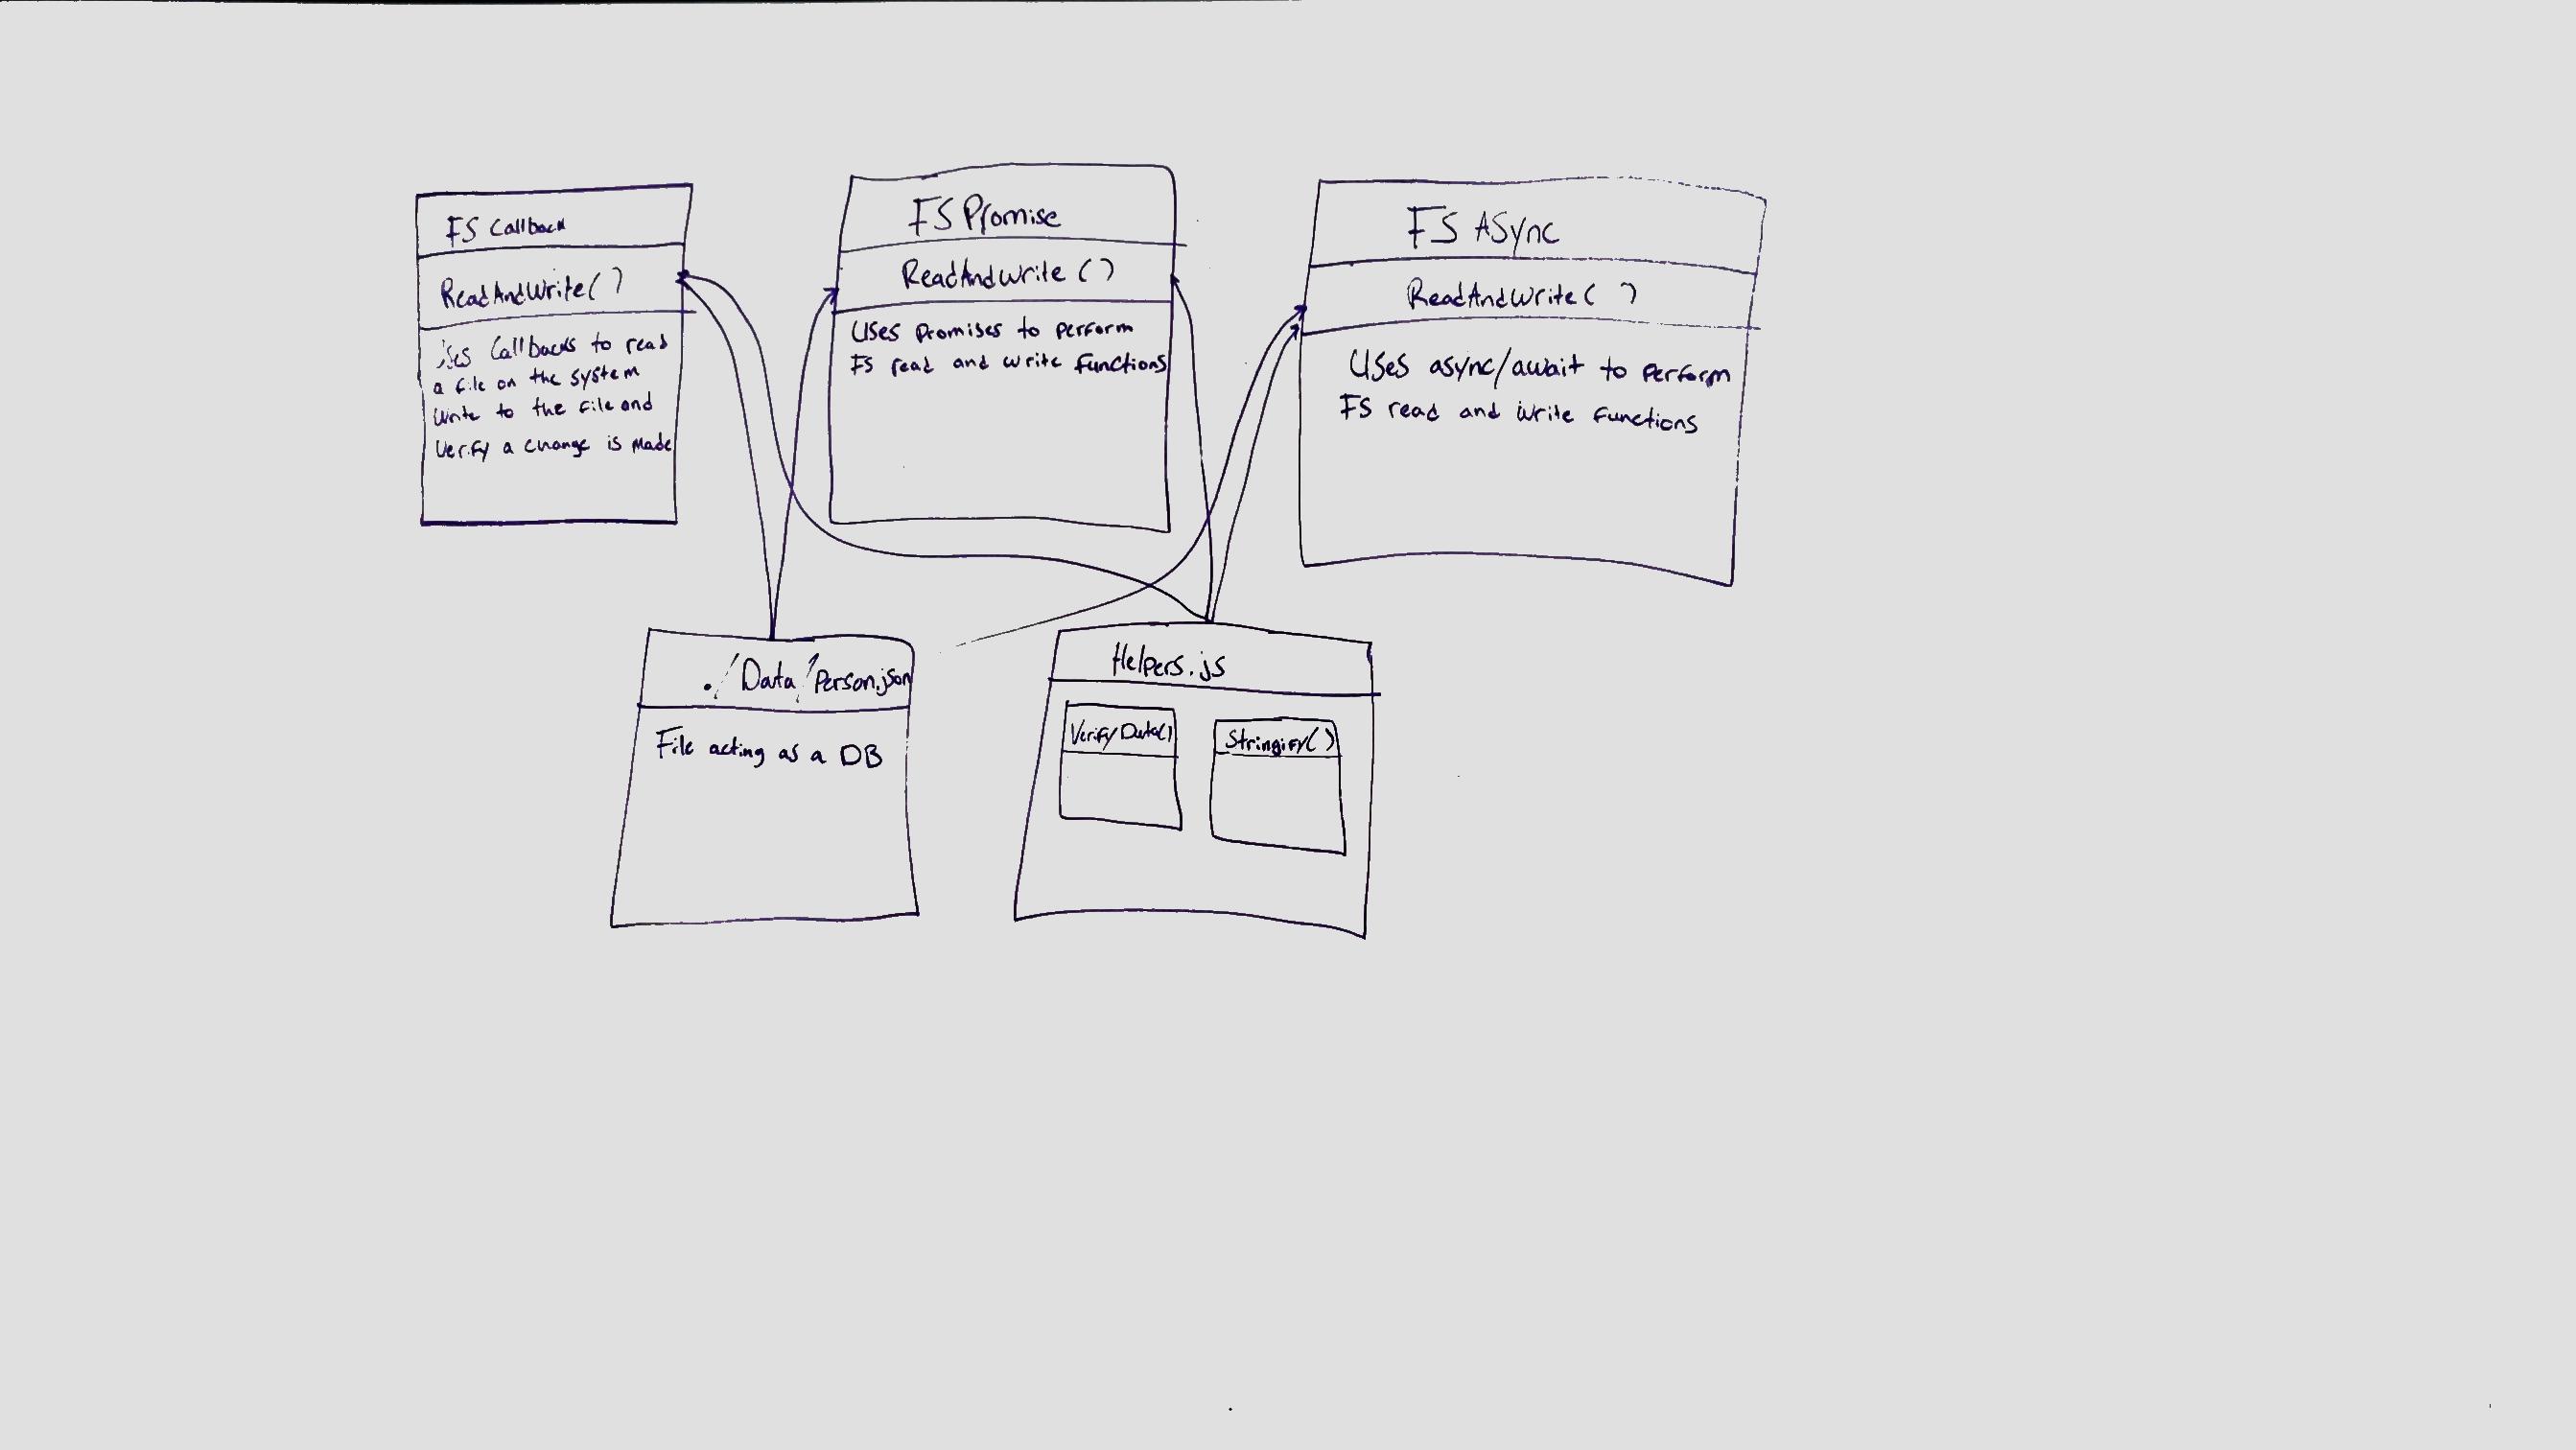 FS Callback
ReadAndWrite()
Uses Callbacks to read
a file on the system
write to the file and
Verify a change is made
FS Promise
ReadAndWrite()
Uses Promises to perform
FS read and write functions
FS ASync
ReadAndWrite( )
Uses async/await to perform
FS read and write functions
./Data/Person.json
File acting as a DB
Helpers.js
VerifyData()
Stringify()